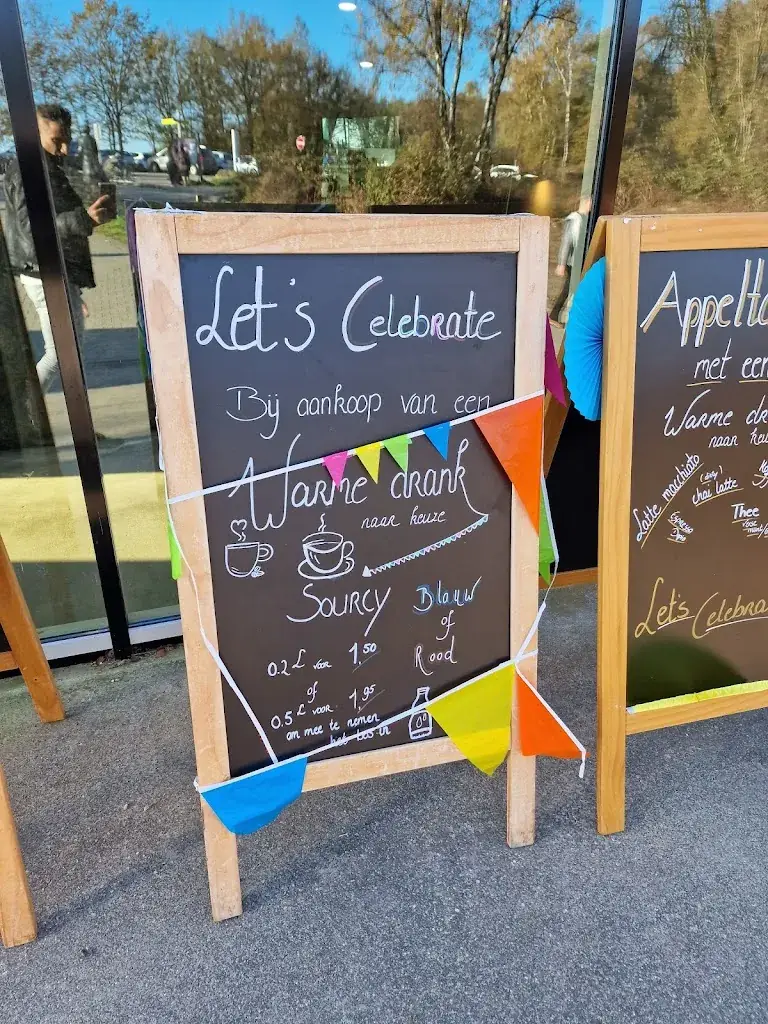 Let's Celebrate
Bij aankoop van een
Warme drank
naar keuze
Sourcy Blauw
of
Rood
0.2L voor 1,50
of
0.5L voor 1,95
om mee te nemen
het bos in
Appelta
met een
Warme dr
naar keu
Latte macchiato
(dirty)
chai latte
Espresso
Thee
Let's Celebra